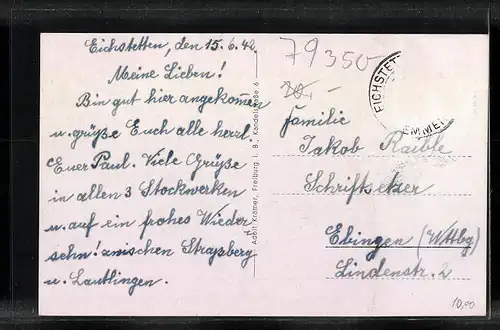 Eichstetten, den 15.6.42
Meine Lieben!
Bin gut hier angekom̄en
u. grüße Euch alle herzl.
Euer Paul. Viele Grüße
in allen 3 Stockwerken
u. auf ein frohes Wieder
sehn! zwischen Straßberg
u. Lautlingen.
Adolf Krämer, Freiburg i. B., Kandelstraße 6
79350
20,-
EICHSTET
EMMEN
Familie
Jakob Raible
Schriftsetzer
Ebingen (Wttbg)
Lindenstr. 2
10,00